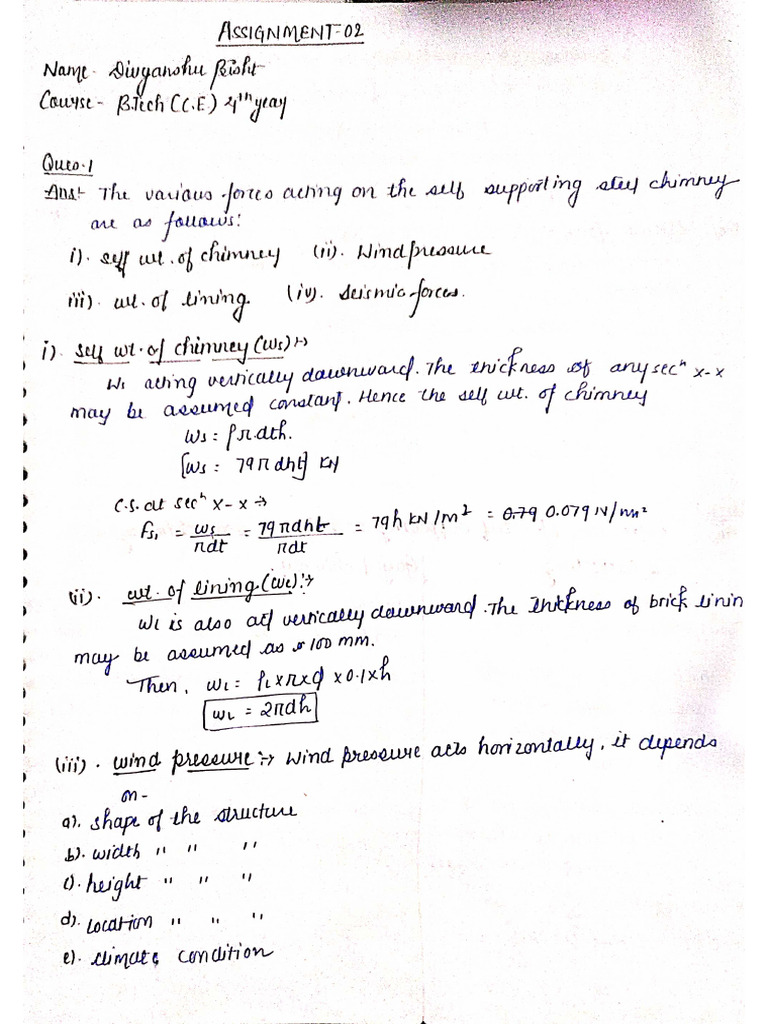 ASSIGNMENT-02
Name- Divyanshu Bisht
Course- B.Tech (C.E) 4th year
Ques.1
Ans:- The various forces acting on the self supporting steel chimney
are as follows:
i). self wt. of chimney (ii). Wind pressure
iii). wt. of lining. (iv). Seismic forces.
i). self wt. of chimney (Ws) :→
Ws acting vertically downward. The thickness of any secⁿ x-x
may be assumed constant. Hence the self wt. of chimney
Ws = ρπ.dth.
[Ws = 79πdht] kN
C.S. at secⁿ x-x :→
fs₁ = Ws/πdt = 79πdht/πdt = 79h kN/m² = 0.79 0.079 N/mm²
(ii). wt. of lining (WL) :→
WL is also act vertically downward. The thickness of brick linin
may be assumed as 100 mm.
Then, WL = ρL×π×d×0.1×h
WL = 2πdh
(iii). wind pressure :→ Wind pressure acts horizontally, it depends
on-
a). shape of the structure
b). width " " "
c). height " " "
d). location " " "
e). climate condition